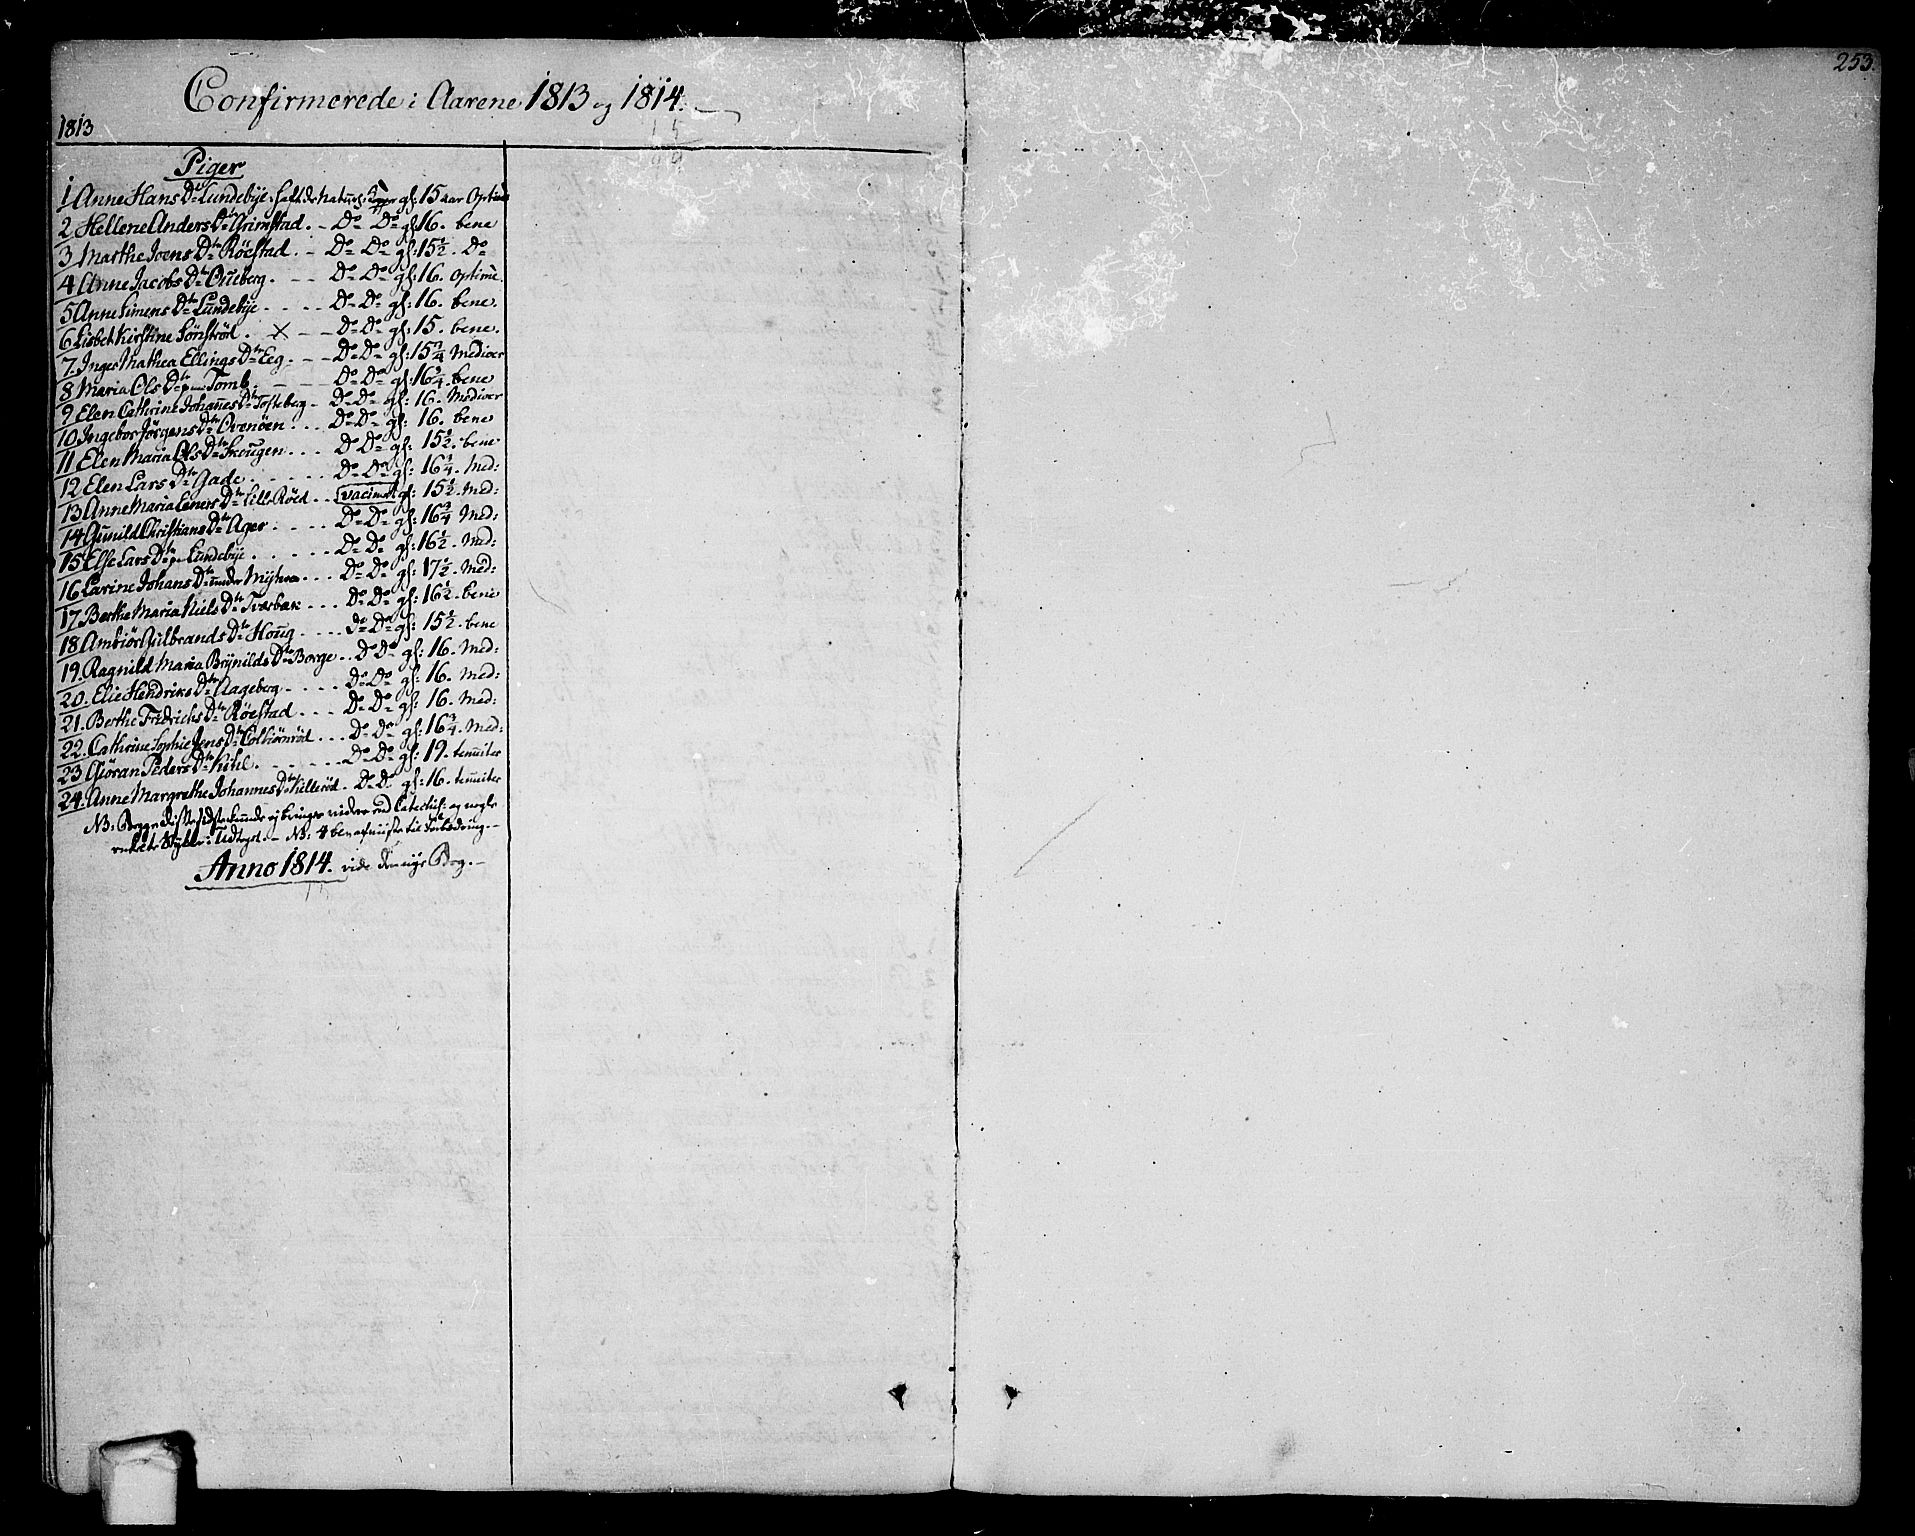 253.
Confirmerede i Aarene 1813 og 1814.
1813
Piger
1 Anne Hans Dtr Lundebÿe, haft de natürl: Koper gl: 15 aar Optime
2 Hellene Anders Dtr Grimstad. - Do Do gl: 16. bene
3 Marthe Joens Dtr Röestad. - Do Do gl: 15½. Do
4 Anne Jacobs Dtr Bueberg. - - Do Do gl: 16. Optime.
5 Anne Simens Dtr Lundebÿe. - - - Do Do gl: 16. bene.
6 Lisbet Kirstine Sönströd. X - - Do Do gl: 15. bene.
7. Inger Mathea Ellings Dtr Eeg. - - Do Do gl: 15¾ Mediocr
8 Maria Ols Dtr Tomb. - - - Do Do gl: 16¾. bene
9 Elen Cathrine Johannes Dtr Tofteberg - Do Do gl: 16. Mediocr
10 Ingebor Jörgens Dtr Ovenöen . . . Do Do gl: 16. bene
11 Elen Maria Ols Dtr Skougen . . . Do Do gl: 15½. bene
12 Elen Lars Dtr Gade . . . . . Do Do gl: 16¼. Med:
13 Anne Maria Eeners Dtr Lille Röed . . vacinert gl: 15½. Med:
14 Gunild Christians Dtr Ager . . . . Do Do gl: 16¾ Med:
15 Else Lars Dtr Lundebÿe . . . . . Do Do gl: 16½. Med:
16 Larine Johans Dtr under Mÿhren . . . Do Do gl: 17½. Med:
17 Berthe Maria Niels Dtr Tværbæk . . . Do Do gl: 16½. bene
18 Ambiör Gulbrands Dtr Houg . . . . Do Do gl: 15½. bene
19. Ragnild Maria Brÿnilds Dtr Borge . . Do Do gl: 16. Med:
20. Elie Hendriks Dtr Aageberg . . . . Do Do gl: 16. Med:
21. Berthe Fridrichs Dtr Röestad . . . Do Do gl: 16. Med:
22. Cathrine Sophie Jens Dtr Coltiörnröd . . . Do Do gl: 16¾. Med:
23 Giöran Peders Dtr Kihl . . . . . Do Do gl: 19. tenuiter
24. Anne Margrethe Johannes Dtr Killeröd. Do Do gl: 16. tenuiter
NB: Begge de sidste kunde ej bringes videre end Catechis: og nogle
enkelte Stykker i Udtoget. - NB: 4 bleve afviiste til Forbedring. -
Anno 1814. vide den nye Bog. -